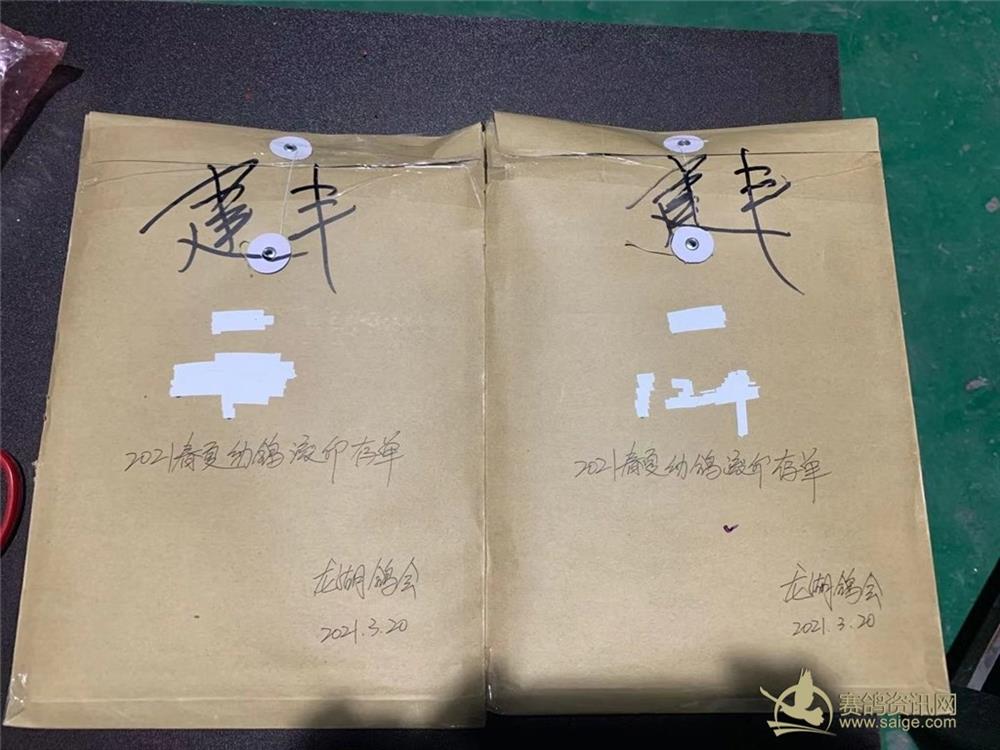 建丰
2021春夏幼鸽印存单
龙湖鸽会
2021.3.20
建丰
2021春夏幼鸽印存单
龙湖鸽会
2021.3.20
赛鸽资讯网
www.saige.com